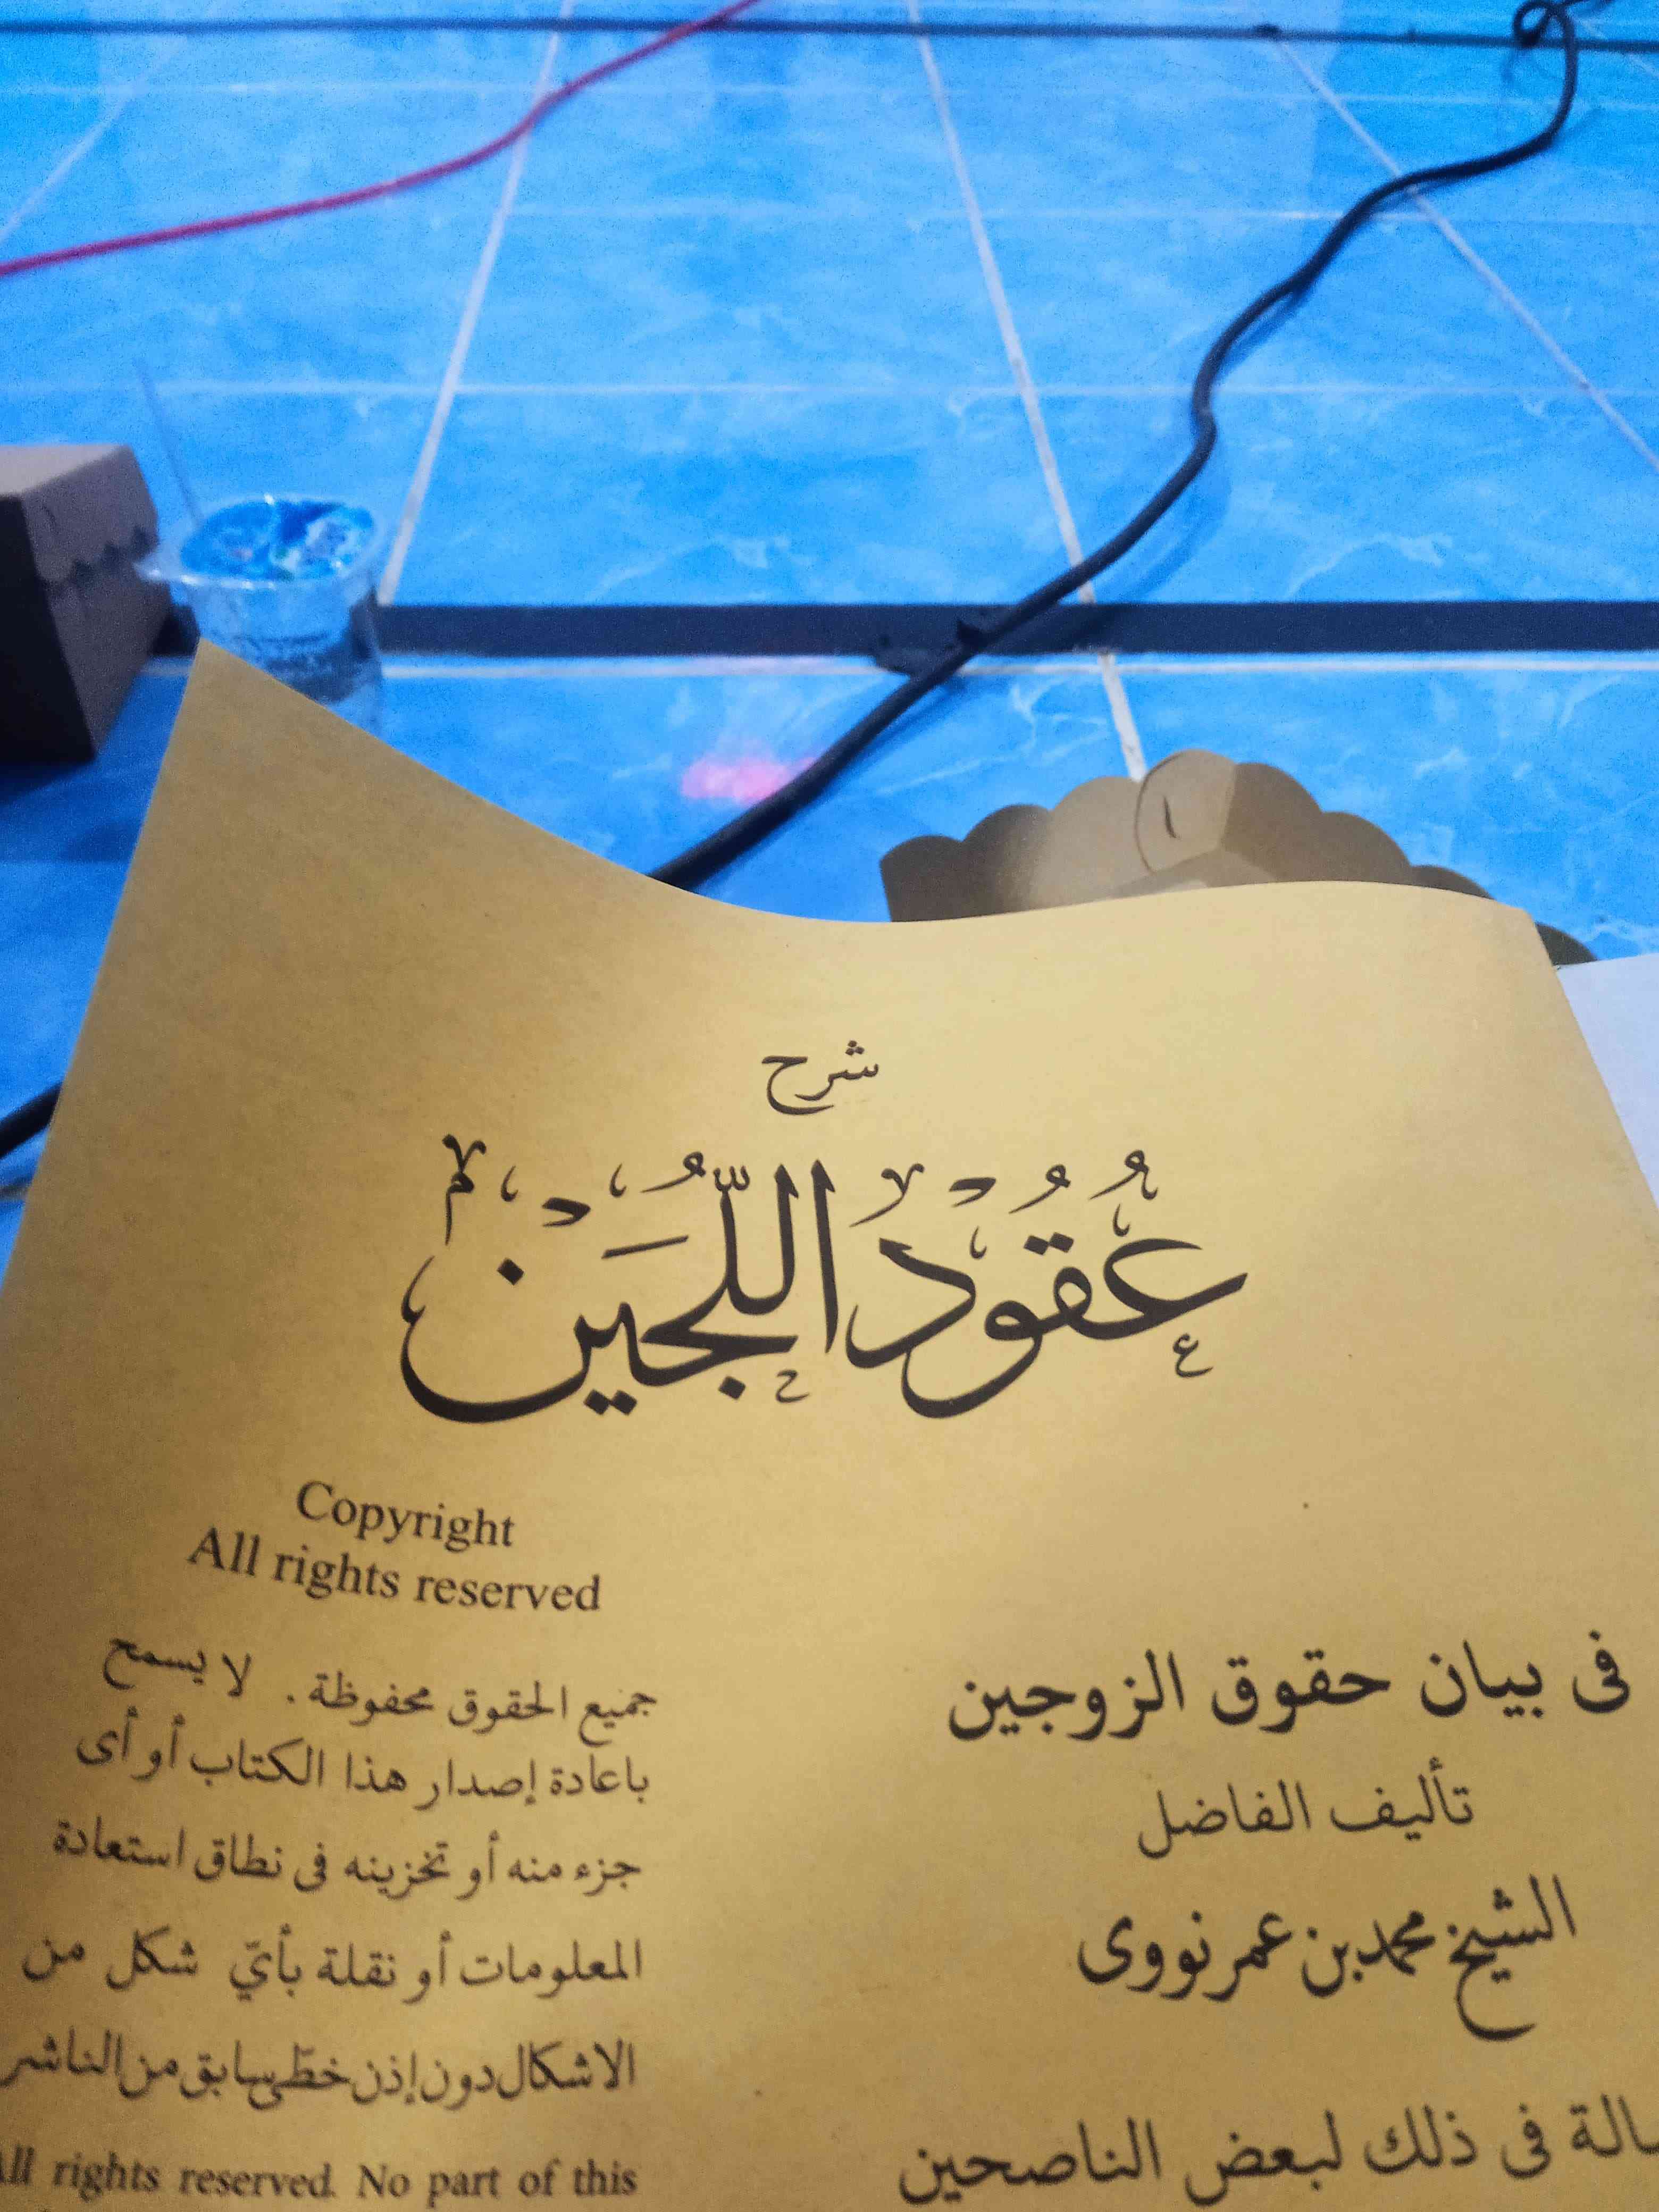 شرح
عُقُودُ اللُّجَيْن
Copyright
All rights reserved
جميع الحقوق محفوظة. لا يسمح
باعادة إصدار هذا الكتاب أو أى
جزء منه أو تخزينه فى نطاق استعادة
المعلومات أو نقلة بأيّ شكل من
الاشكال دون إذن خطّى سابق من الناشر
All rights reserved. No part of this
فى بيان حقوق الزوجين
تأليف الفاضل
الشيخ محمد بن عمر نووى
فى ذلك لبعض الناصحين